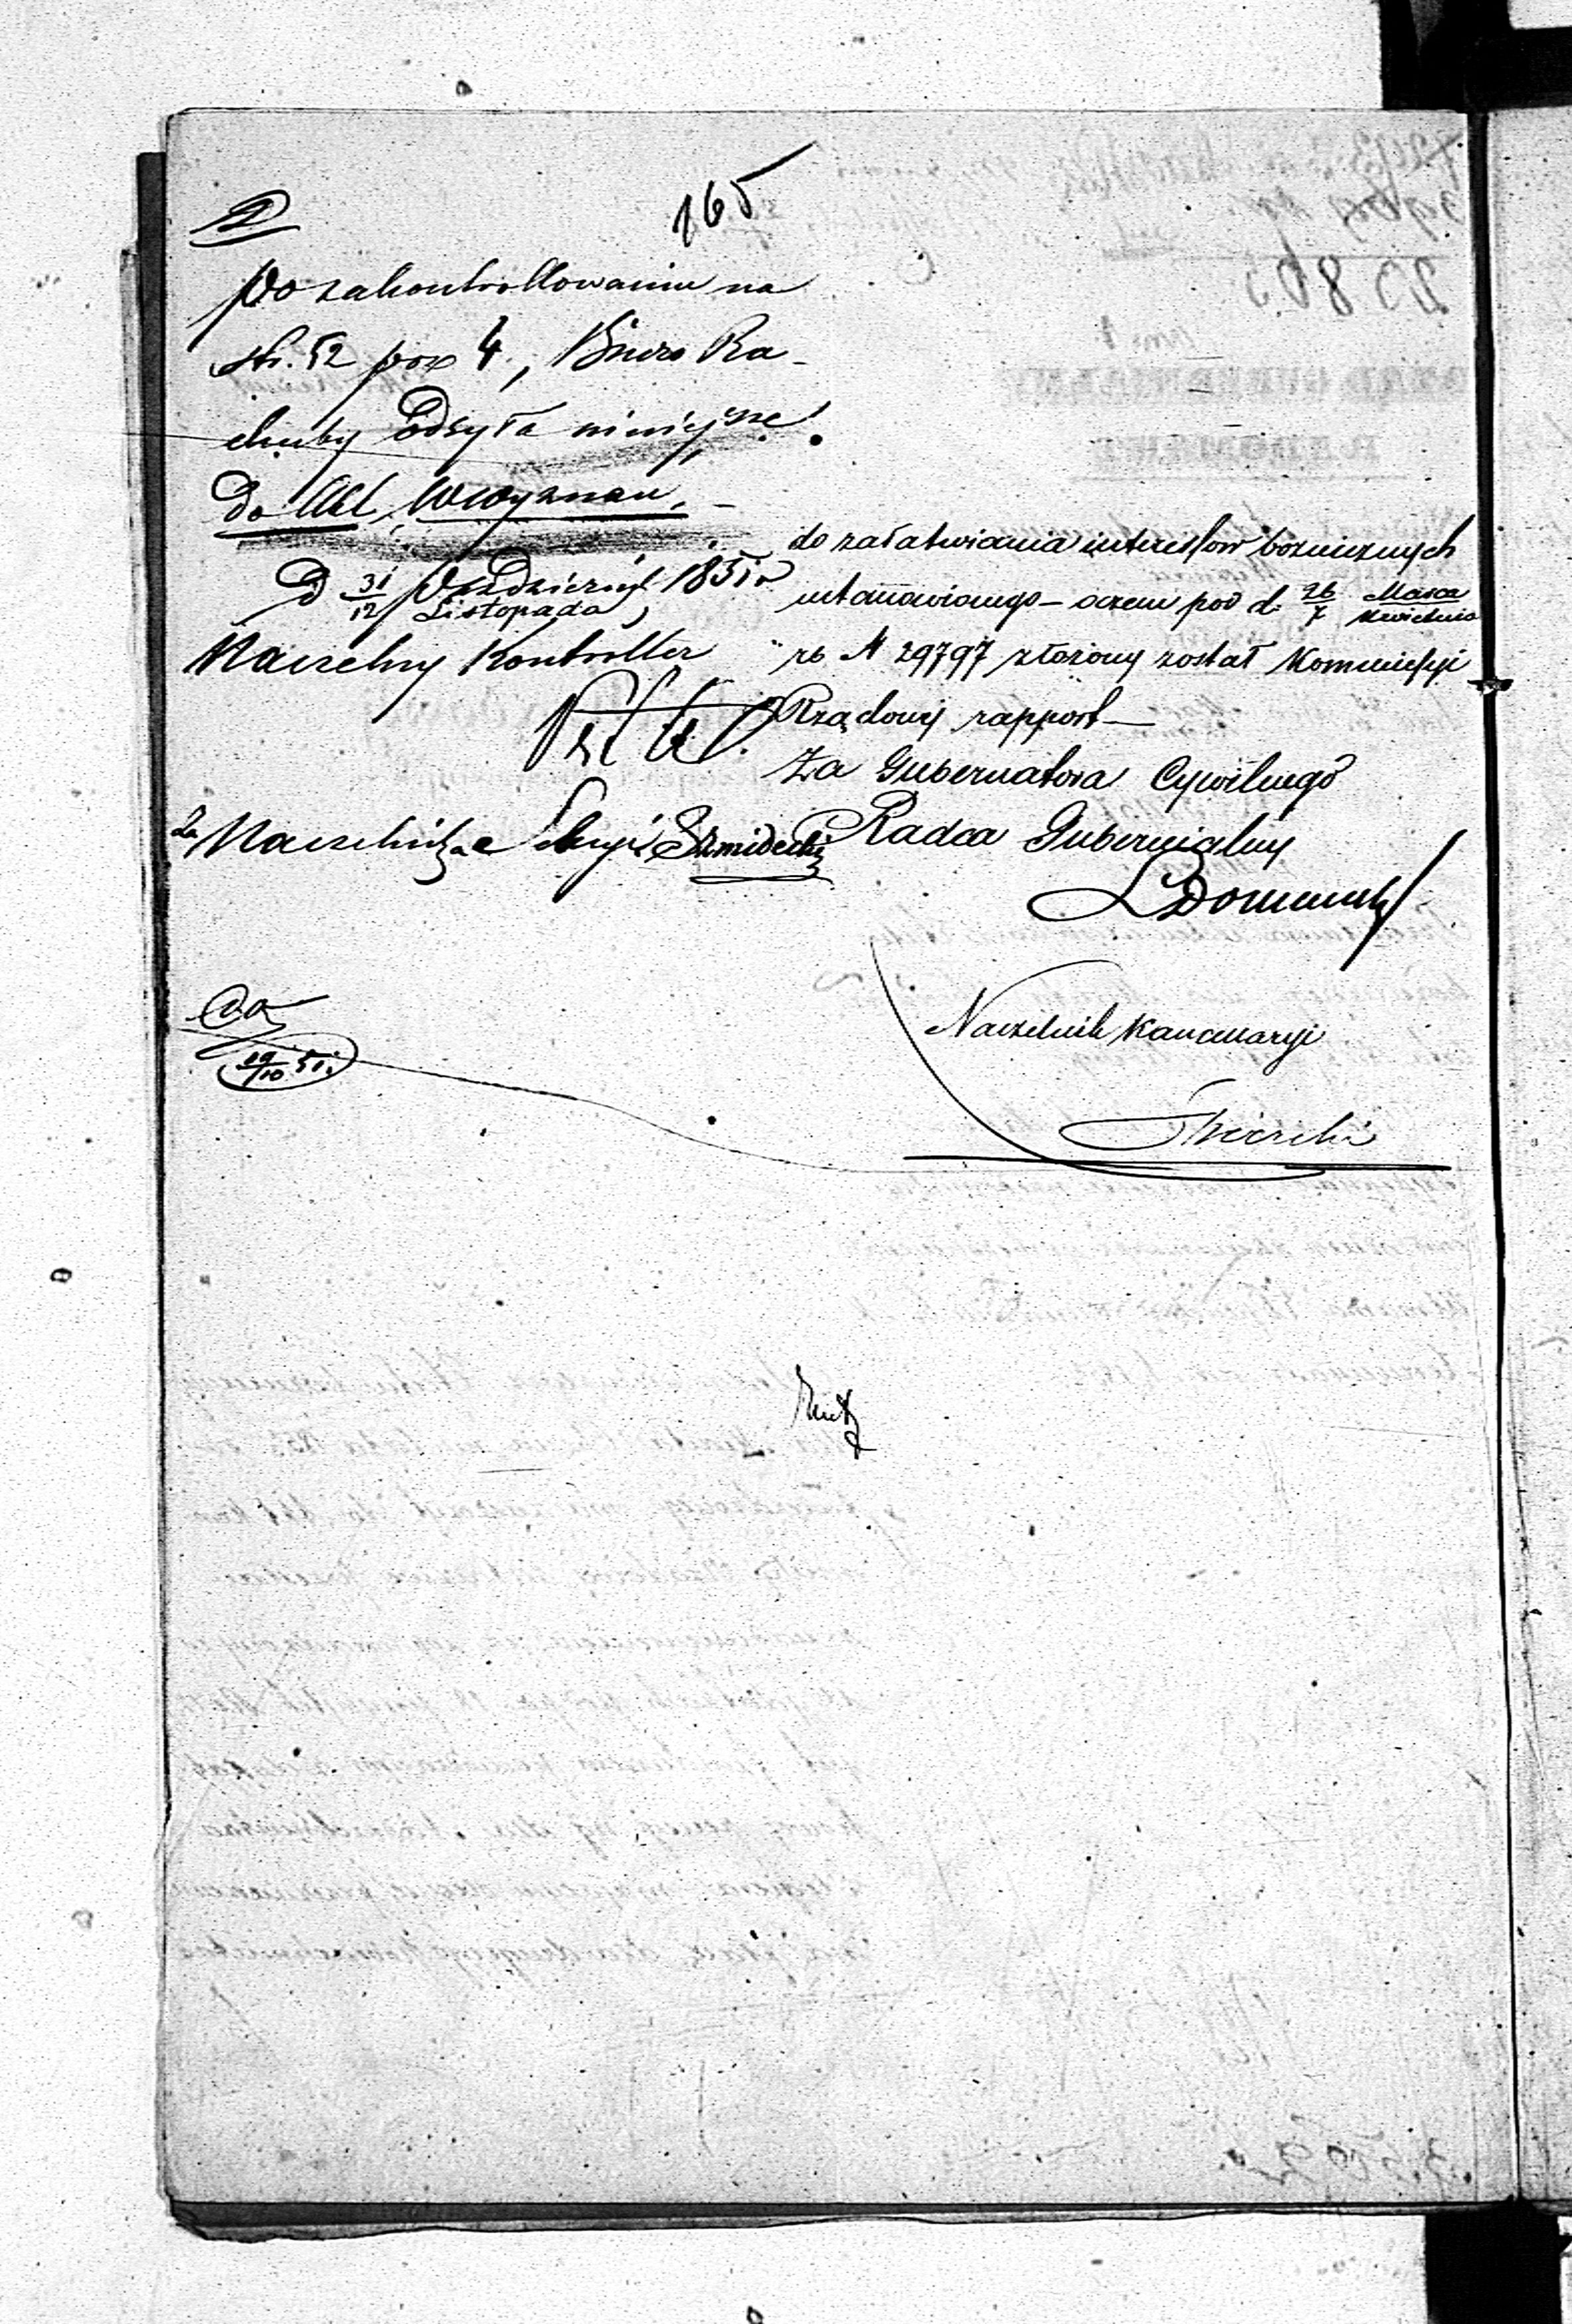 165
Po zakontrollowaniu na
str. 52 poz 4, Biuro Ra-
chuby odsyła niniejsze
do Akt Wwyznan.
D 31/12 Października/Listopada 1851 r
Naczelny Kontroller
Za Naczelnika Sekcyi Szmidecki
19/10 51.
do załatwiania interessow bożniczych
ustanowionego – oczem pod d. 26/7 Marca/Kwietnia
rb N 29797 złożony został Kommissyi
Rządowej rapport –
Za Gubernatora Cywilnego
Radca Gubernialny
Naczelnik Kancellaryi